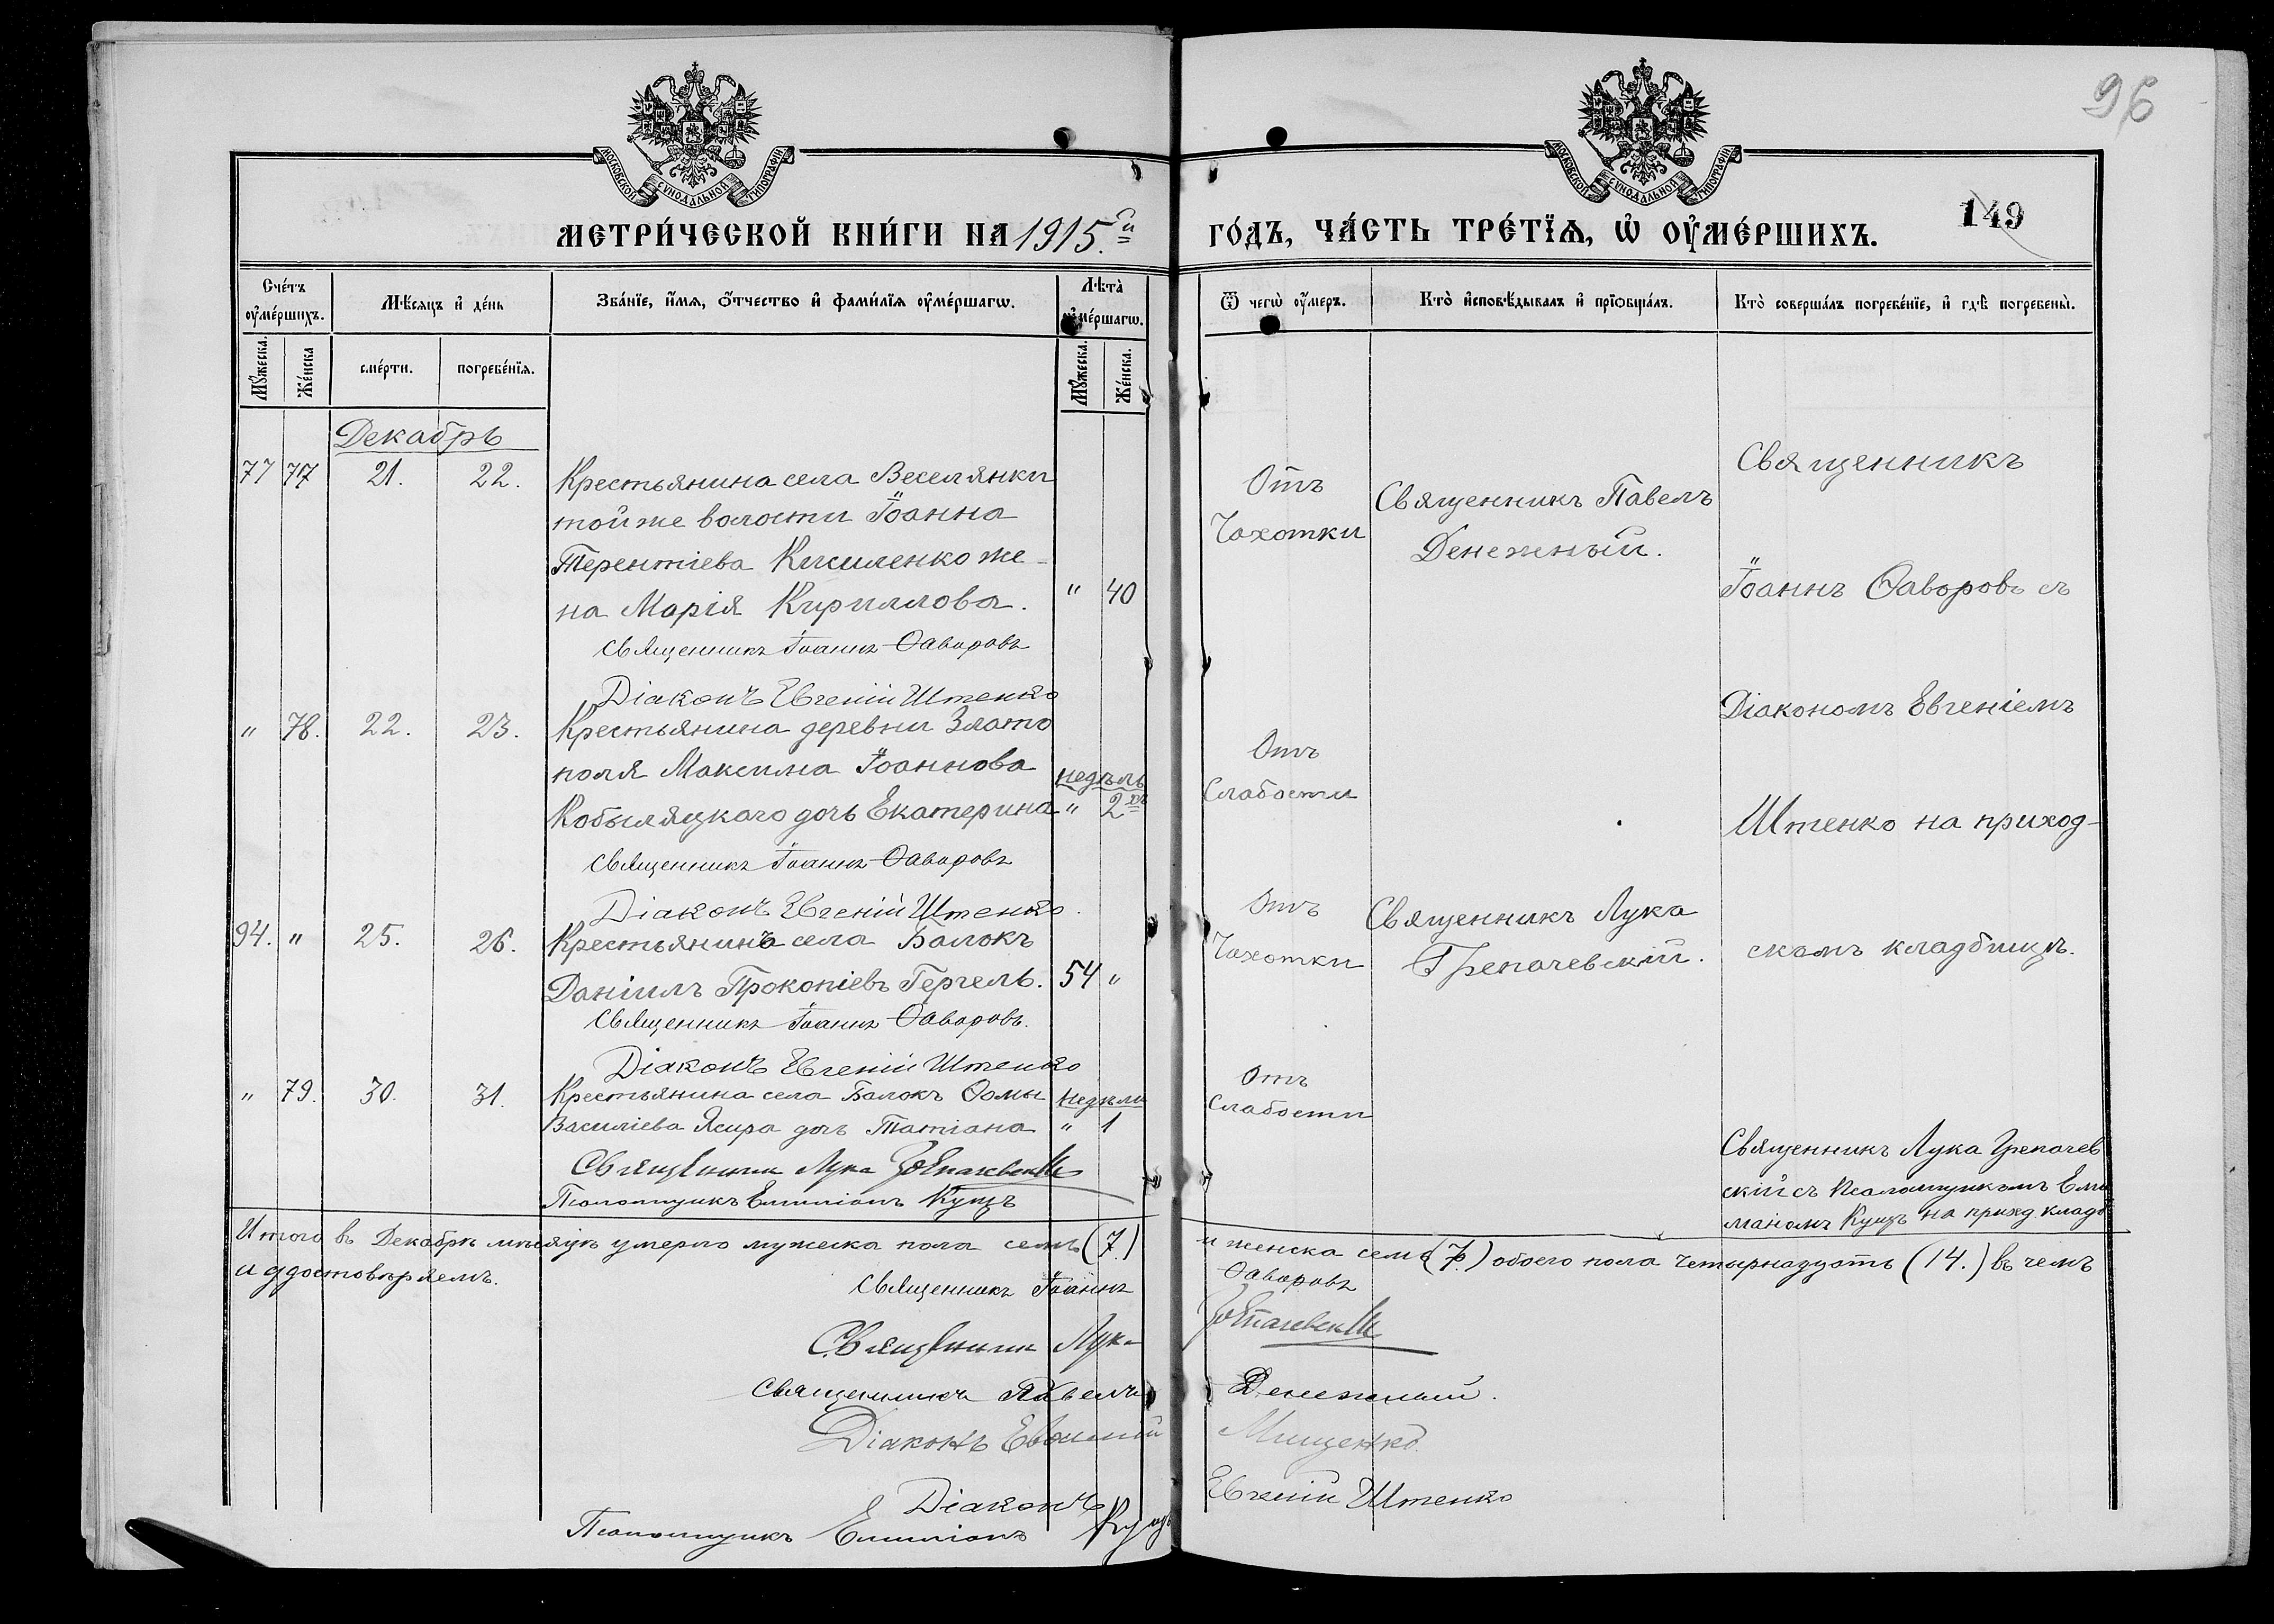 96
МОСКОВСКОЙ СУНОДАЛЬНОЙ ТИПОГРАФІИ
МОСКОВСКОЙ СУНОДАЛЬНОЙ ТИПОГРАФІИ
149
МЕТРИ́ЧЕСКОЙ КНИ́ГИ НА 1915.й
ГО́ДЪ, ЧА́СТЬ ТРЕ́ТЇѦ, Ѡ҆ ОУ҆МЕ́РШИХЪ.
Сче́тъ оу҆ме́ршихъ.
Мѣ́сяцъ и҆ де́нь
Зва́нїе, и҆́мѧ, ѻ҆́тчество и҆ фами́лїѧ оу҆ме́ршагѡ.
Лѣ́та̀ оу҆ме́ршагѡ.
Ѿ чегѡ̀ оу҆́меръ.
Кто̀ и҆сповѣ́дывалъ и҆ прїѡбща́лъ.
Кто̀ соверша́лъ погребе́нїе, и҆ гдѣ̀ погребены̀.
Мꙋ́жеска.
Же́нска
сме́рти.
погребе́нїѧ.
Мꙋ́жеска.
Же́нска.
Декабрь
77 77 21. 22.
Крестьянина села Веселянки
тойже волости Іоанна
Терентіева Кисиленко же-
на Марія Кириллова. " 40
Священникъ Іоаннъ Ѳаворовъ
Діаконъ Евгеній Штенко
Отъ
Чахотки
Священникъ Павелъ
Денежный.
Священникъ
Іоаннъ Ѳаворовъ съ
Діакономъ Евгеніемъ
Штенко на приход-
скомъ кладбищѣ.
" 78. 22. 23.
Крестьянина деревни Злато
поля Максима Іоаннова недѣль
Кобыляцкаго дочь Екатерина " 2хъ
Священникъ Іоаннъ Ѳаворовъ
Діаконъ Евгеній Штенко.
Отъ
Слабости
94. " 25. 26.
Крестьянинъ села Балокъ
Даніилъ Прокопіевъ Гергель. 54 "
Священникъ Іоаннъ Ѳаворовъ.
Діаконъ Евгеній Штенко
Отъ
Чахотки
Священникъ Лука
Грепачевскій.
" 79. 30. 31.
Крестьянина села Балокъ Ѳомы недѣли
Василіева Ясира дочь Татіана " 1
Священникъ Лука Грепачевскій
Псаломщикъ Емиліанъ Кущъ
Отъ
Слабости
Священникъ Лука Грепачев
скій съ Псаломщикомъ Еми
ліаномъ Кущъ на приход. кладб
Итого въ Декабрѣ мѣсяцѣ умерло мужеска пола семь (7.) и женска семь (7.) обоего пола четырнадцать (14.) въ чемъ
и удостовѣряемъ.
Священникъ Іоаннъ Ѳаворовъ
Священникъ Лука Грепачевскій
Священникъ Павелъ Денежный.
Діаконъ Евѳимій Мищенко.
Діаконъ Евгеній Штенко
Псаломщикъ Емиліанъ Кущъ